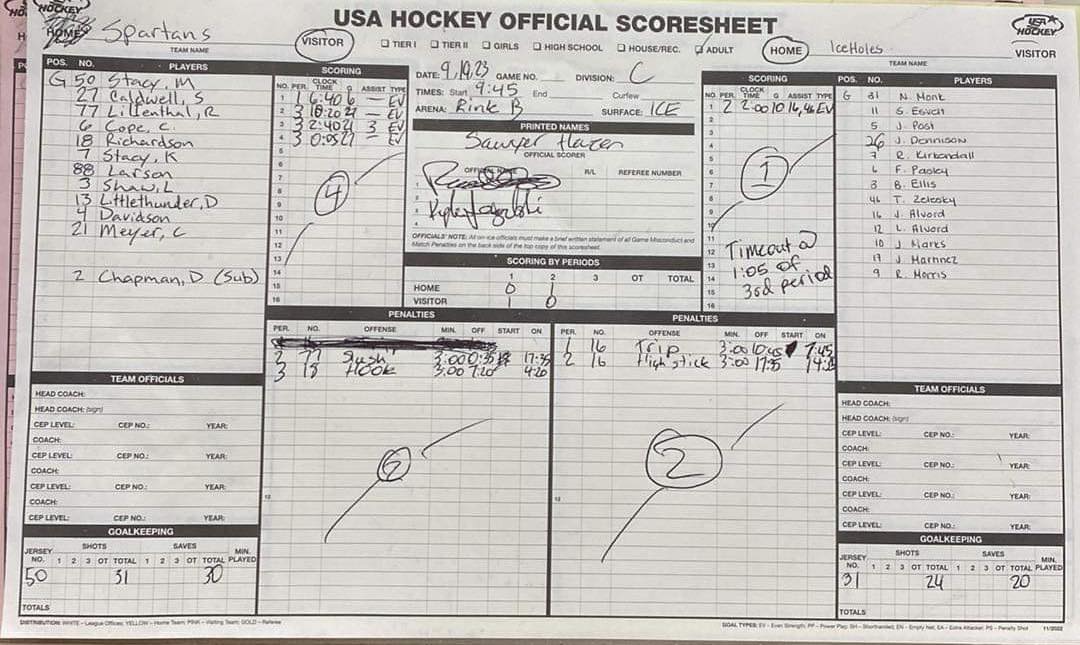 HOCKEY
USA HOCKEY OFFICIAL SCORESHEET
USA HOCKEY
HOME
Spartans
VISITOR
TEAM NAME
☐ TIER I ☐ TIER II ☐ GIRLS ☐ HIGH SCHOOL ☐ HOUSE/REC. ☐ ADULT
HOME
IceHoles
VISITOR
TEAM NAME
POS. NO. PLAYERS
G 50 Stacy, M
27 Caldwell, S
77 Lillenthal, R
6 Cope, C.
18 Richardson
7 Stacy, K
88 Larson
3 Shaw, L
13 Littlethunder, D
4 Davidson
21 Meyer, C
2 Chapman, D (Sub)
SCORING
NO. PER. CLOCK TIME G ASSIST TYPE
1 1 6:40 6 — EV
2 3 18:20 21 — EV
3 3 2:40 21 3 EV
4 3 0:05 27 — EV
5
6
7
8
9
10
11
12
13
14
15
16
4
DATE: 9,19,23 GAME NO. DIVISION: C
TIMES: Start 9:45 End Curfew
ARENA: Rink B SURFACE: ICE
PRINTED NAMES
Sawyer Hazen
OFFICIAL SCORER
R/L REFEREE NUMBER
OFFICIALS' NOTE: All on-ice officials must make a brief written statement of all Game Misconduct and
Match Penalties on the back side of the top copy of this scoresheet.
SCORING BY PERIODS
1 2 3 OT TOTAL
HOME 0 1
VISITOR 1 0
SCORING
NO. PER. CLOCK TIME G ASSIST TYPE
1 2 2:00 10 16, 46 EV
2
3
4
5
6
7
8
9
10
11
12
13
14
15
16
1
Timeout @
1:05 of
3rd period
POS. NO. PLAYERS
G 31 N. Monk
11 S. Esvich
5 J. Post
26 J. Dennison
7 R. Kirkendall
6 F. Pasley
3 B. Ellis
46 T. Zelesky
16 J. Alvord
12 L. Alvord
10 J Marks
17 J Martinez
9 R. Morris
PENALTIES
PER. NO. OFFENSE MIN. OFF START ON
2 77 3:00 0:35 17:35
3 13 Hook 3:00 7:20 4:20
12
2
PENALTIES
PER. NO. OFFENSE MIN. OFF START ON
1 16 Trip 3:00 10:45 7:45
2 16 High stick 3:00 17:35
12
2
TEAM OFFICIALS
HEAD COACH:
HEAD COACH: (sign)
CEP LEVEL: CEP NO.: YEAR:
COACH:
CEP LEVEL: CEP NO.: YEAR:
COACH:
CEP LEVEL: CEP NO.: YEAR:
COACH:
CEP LEVEL: CEP NO.: YEAR:
GOALKEEPING
JERSEY NO. SHOTS 1 2 3 OT TOTAL SAVES 1 2 3 OT TOTAL MIN. PLAYED
50 31 30
TOTALS
TEAM OFFICIALS
HEAD COACH:
HEAD COACH: (sign)
CEP LEVEL: CEP NO.: YEAR:
COACH:
CEP LEVEL: CEP NO.: YEAR:
COACH:
CEP LEVEL: CEP NO.: YEAR:
COACH:
CEP LEVEL: CEP NO.: YEAR:
GOALKEEPING
JERSEY NO. SHOTS 1 2 3 OT TOTAL SAVES 1 2 3 OT TOTAL MIN. PLAYED
31 24 20
TOTALS
DISTRIBUTION: WHITE – League Offices; YELLOW – Home Team; PINK – Visiting Team; GOLD – Referee
GOAL TYPES: EV - Even Strength; PP - Power Play; SH - Shorthanded; EN - Empty Net; EA - Extra Attacker; PS - Penalty Shot 11/2022